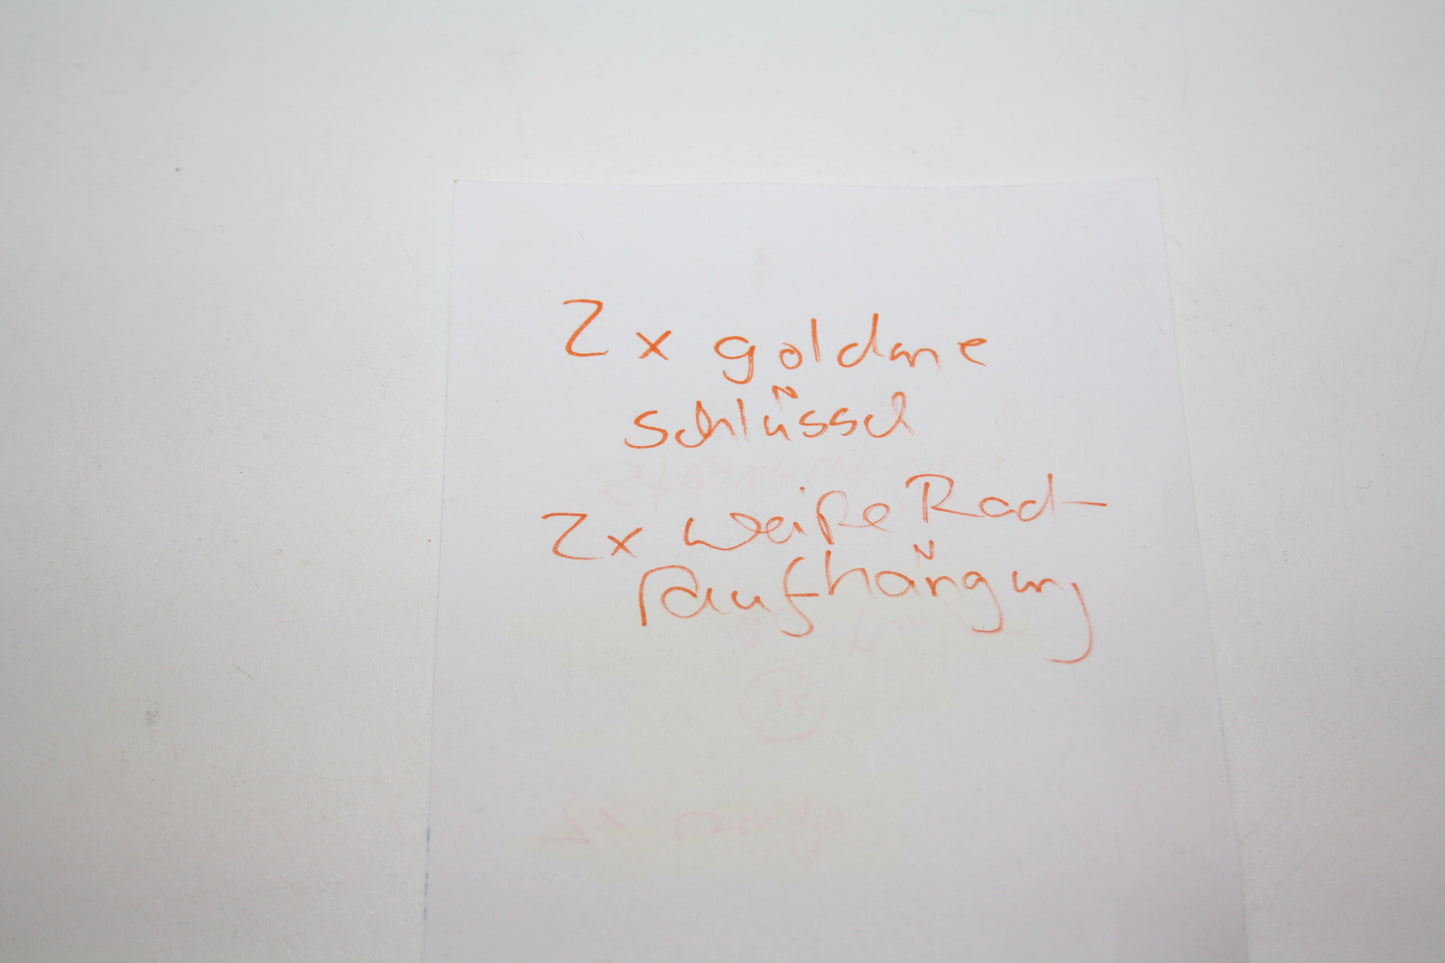 2x goldene
Schlüssel
2x weiße Rad-
aufhängung